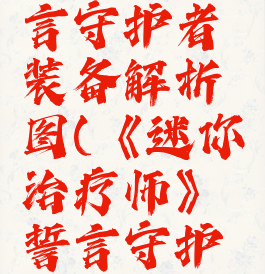 言守护者
装备解析
图(《迷你
治疗师》
誓言守护